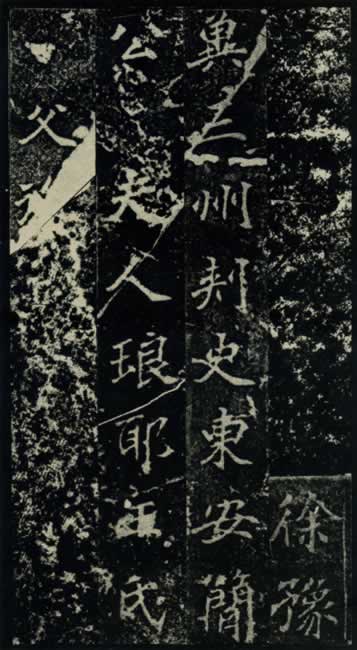 徐豫
冀三州刺史東安簡
公夫人琅耶王氏
父